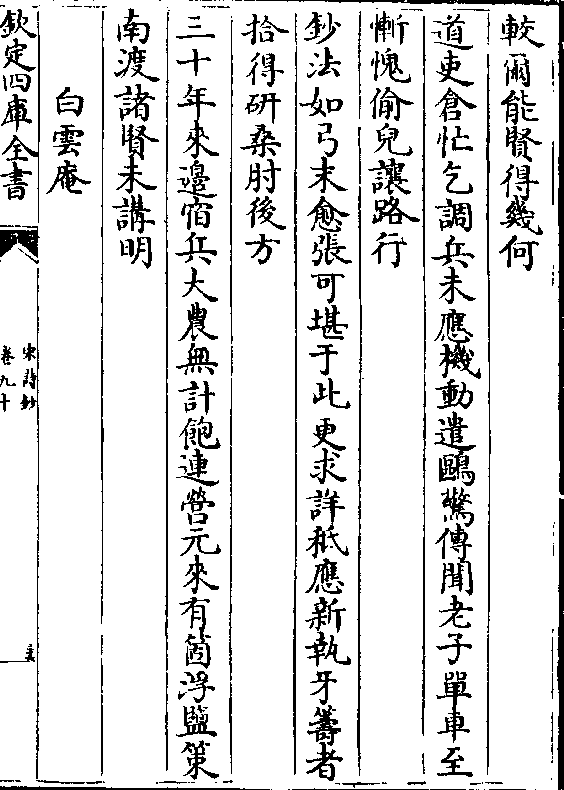 較爾能賢得幾何
道吏倉忙乞調兵未應機動遣鷗驚傳聞老子單車至
慚愧偷兒讓路行
鈔法如弓末愈張可堪于此更求詳秪應新執牙籌者
拾得研桑肘後方
三十年來邊宿兵大農無計飽連營元來有箇浮鹽策
南渡諸賢未講明
白雲庵
欽定四庫全書
宋詩鈔
卷九十